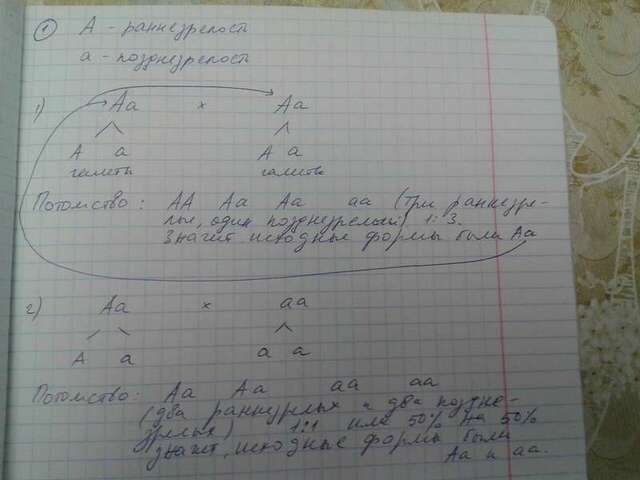 ① А - раннезрелость
а - позднезрелость
1) Аа х Аа
А а А а
гаметы гаметы
Потомство: АА Аа Аа аа (три раннезре-
лые, один позднезрелый) 1:3.
Значит исходные формы были Аа
2) Аа х аа
А а а а
Потомство: Аа Аа аа аа
(два раннезрлых и два поздне-
зрлых) 1:1 или 50% на 50%
значит, исходные формы были
Аа и аа.